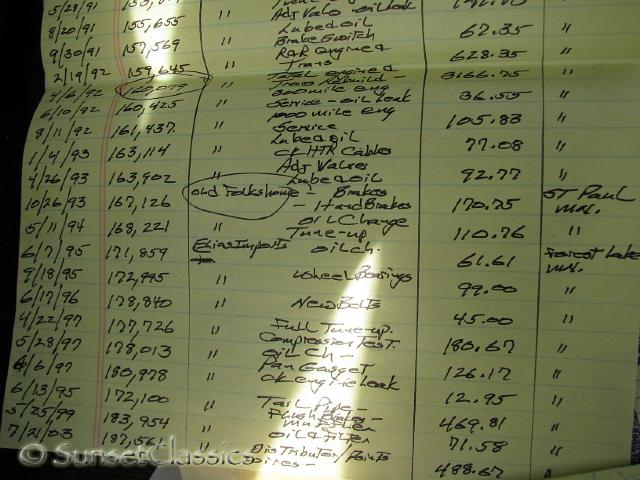 5/28/91
8/20/91 155,655 " Adj Valv - oil leak
9/30/91 157,569 " Lube & oil 62.35 "
Brake Switch
2/19/92 159,645 " R&R engine & Trans 628.35 "
4/6/92 160,079 " Total engine & Trans Rebuild - 3166.75 "
6/10/92 160,425 " 300 mile eng Service - oil leak 36.55 "
8/11/92 161,437 " 1000 mile eng Service 105.83 "
1/4/93 163,114 " Lube & oil ck HTR Cables 77.08 "
4/26/93 163,902 " Adj Valves Lube & oil 92.77 "
10/26/93 167,126 old Folks home - Brakes - Hand Brakes 170.75 ST Paul mn.
5/11/94 168,221 " OIL Change Tune-up 110.76 "
6/7/95 171,859 Imports oil ch. 61.61 Forest Lake mn.
9/18/95 172,995 " Wheel Bearings 99.00 "
6/17/96 178,840 " New Belts 45.00 "
4/22/97 177,726 " Full Tune-up. Compression Test. 180.67 "
5/28/97 178,013 " oil Ch - Pan Gasget 126.17 "
6/6/97 180,978 " ck engine leak 12.95 "
6/13/95 172,100 " Tail Pipe
5/25/99 183,954 " Flush Brakes - 469.81 "
7/21/03 187,561 " oil & Filter 71.58 "
" Distributor/Points 488.67 "
© SunsetClassics